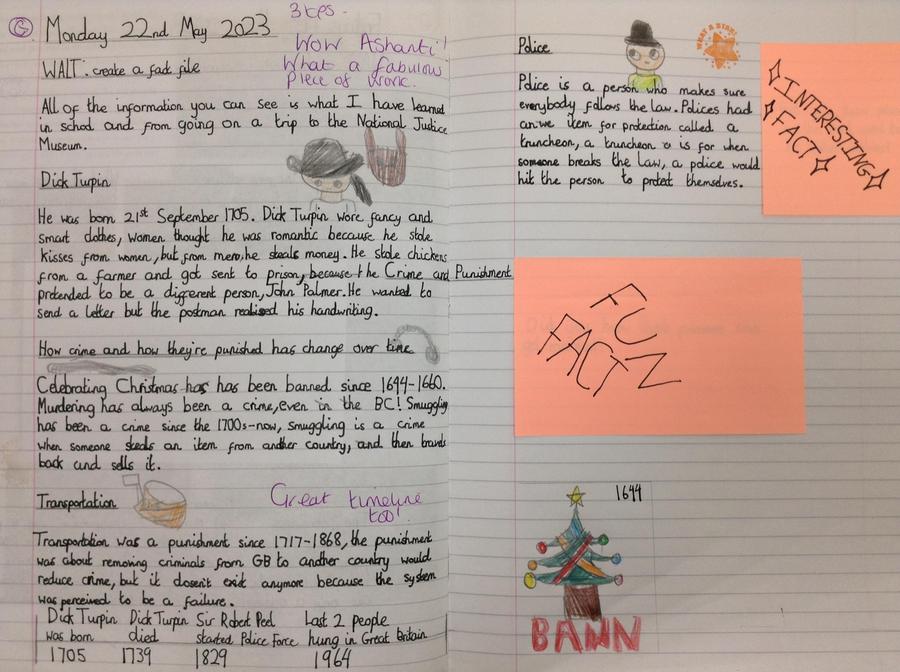 G
Monday 22nd May 2023
3tps.
Wow Ashanti!
What a fabulous
piece of work.
WALT: create a fact file
All of the information you can see is what I have learned
in school and from going on a trip to the National Justice
Museum.
Dick Turpin
He was born 21st September 1705. Dick Turpin wore fancy and
smart clothes, women thought he was romantic because he stole
kisses from women, but from men, he steals money. He stole chickens
from a farmer and got sent to prison, because the Crime and Punishment
pretended to be a different person, John Palmer. He wanted to
send a letter but the postman realised his handwriting.
How crime and how they're punished has change over time
Celebrating Christmas has has been banned since 1644-1660.
Murdering has always been a crime, even in the BC! Smuggling
has been a crime since the 1700s-now, smuggling is a crime
when someone steals an item from another country, and then
back and sells it.
Transportation
Great timeline
too!
Transportation was a punishment since 1717-1868, the punishment
was about removing criminals from GB to another country would
reduce crime, but it doesn't exist anymore because the system
was perceived to be a failure.
Dick Turpin Dick Turpin Sir Robert Peel Last 2 people
was born died started Police Force hung in Great Britain
1705 1739 1829 1964
Police
WHAT A STAR!
Police is a person who makes sure
everybody follows the law. Polices had
an item for protection called a
truncheon, a truncheon is for when
someone breaks the Law, a police would
hit the person to protect themselves.
INTERESTING
FACT
FUN
FACT
1644
BANN